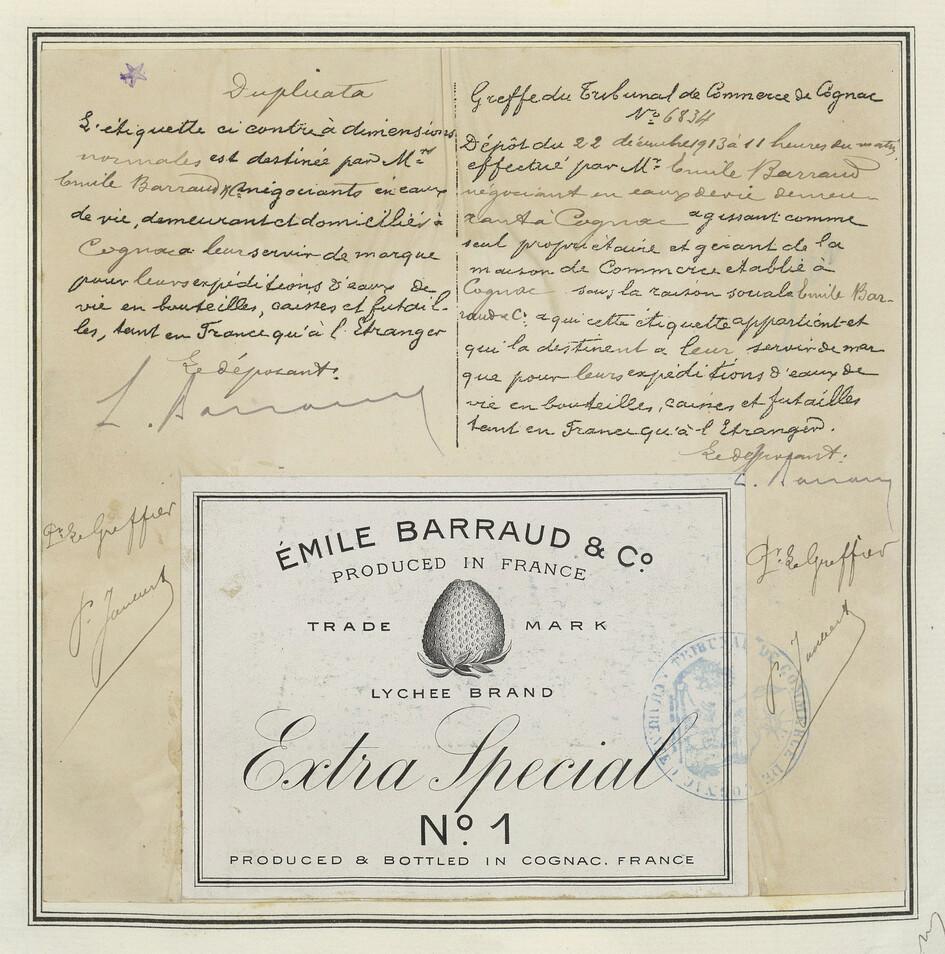 Duplicata
L'étiquette ci contre à dimensions
normales est destinée par Mrs
Emile Barraud & Co négociants en eaux
de vie, demeurant et domiciliés à
Cognac a leur servir de marque
pour leurs expéditions d'eaux de
vie en bouteilles, caisses et futail-
les, tant en France qu'à l'Etranger
Le déposant:
L. Barraud
Pr Le Greffier
Greffe du Tribunal de Commerce de Cognac
No 6834
Dépôt du 22 décembre 1913 à 11 heures du matin,
effectué par Mr Emile Barraud
négociant en eaux de vie demeu-
rant à Cognac agissant comme
seul propriétaire et gérant de la
maison de Commerce etablie à
Cognac sous la raison sociale Emile Bar-
raud & Co a qui cette étiquette appartient et
qui la destinent a leur servir de mar
que pour leurs expéditions d'eaux de
vie en bouteilles, caisses et futailles
tant en France qu'à l'Etranger.
Le déposant:
Pr Le Greffier
ÉMILE BARRAUD & Co
PRODUCED IN FRANCE
TRADE MARK
LYCHEE BRAND
Extra Special
No 1
PRODUCED & BOTTLED IN COGNAC. FRANCE
TRIBUNAL DE COMMERCE DE COGNAC